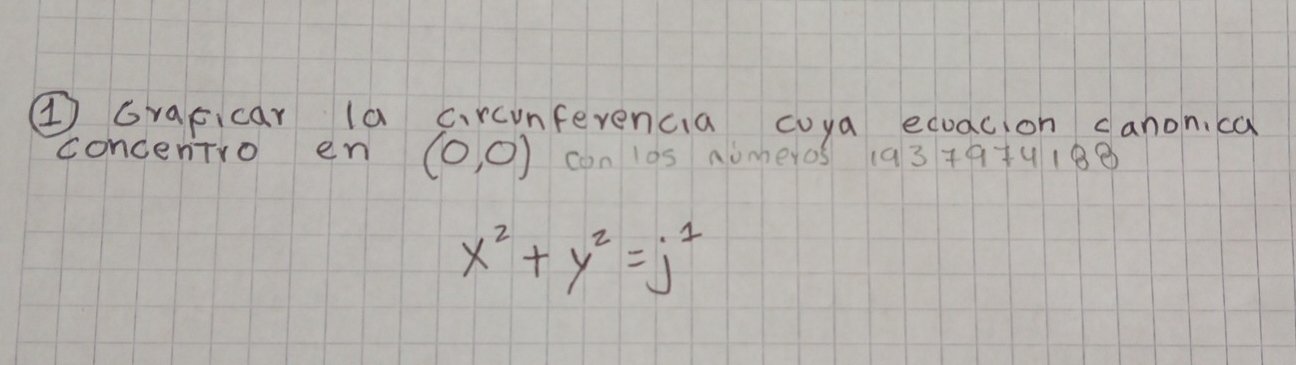 ① Graficar la circunferencia cuya ecuacion canonica
concentro en (0,0) con los números 1937974188
x² + y² = j¹